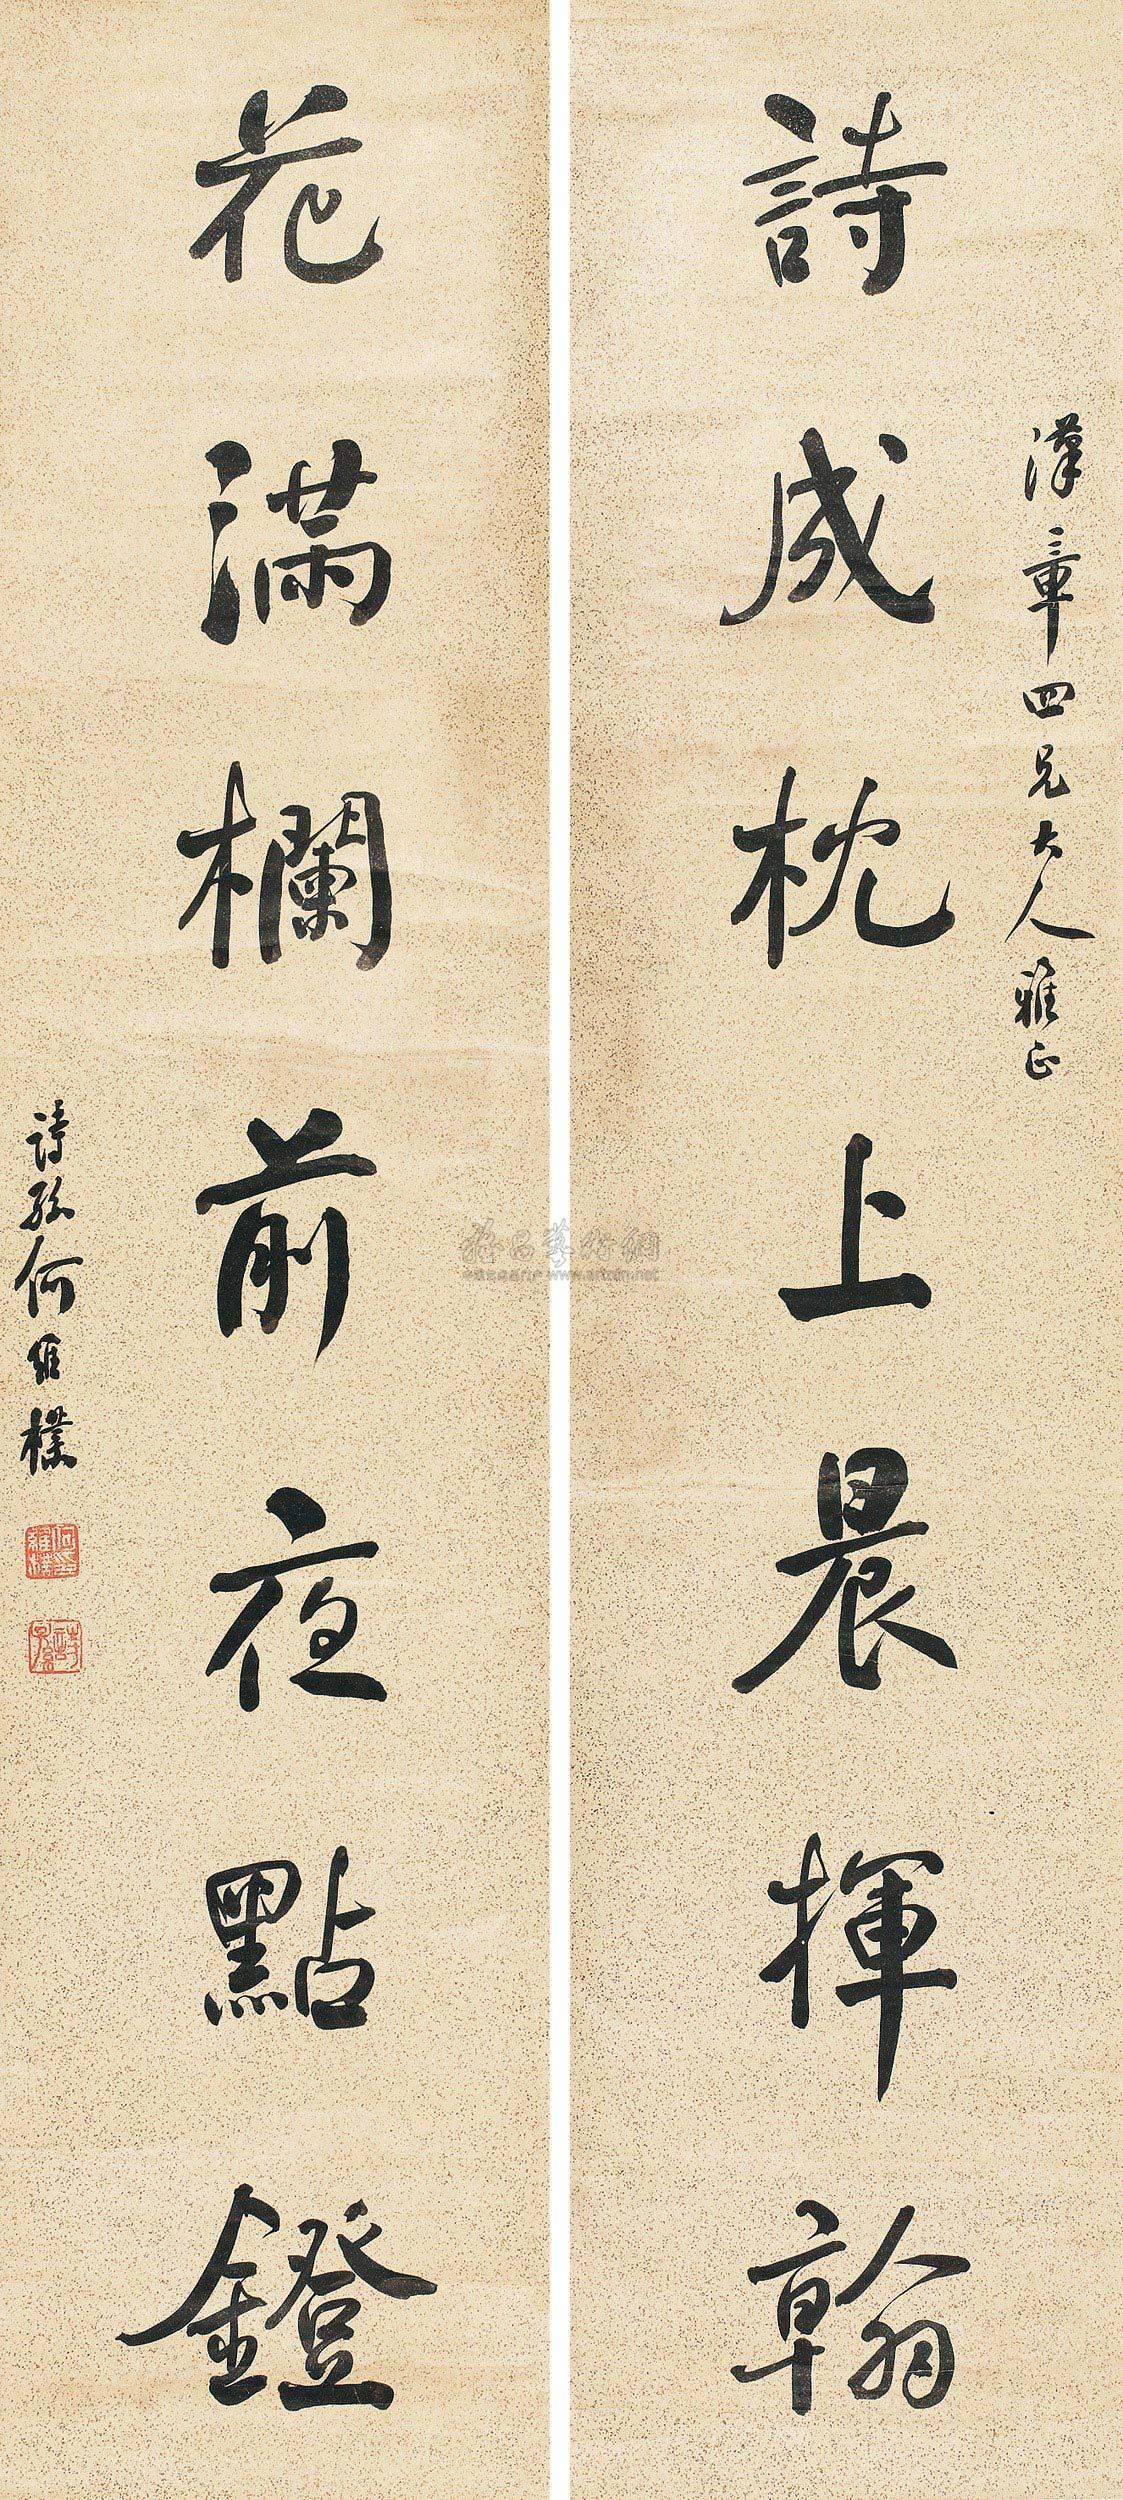 漢章四兄大人雅正
詩成枕上晨揮翰
花滿欄前夜點鐙
詩孫何維樸
何維樸印
詩孫
www.artxun.net